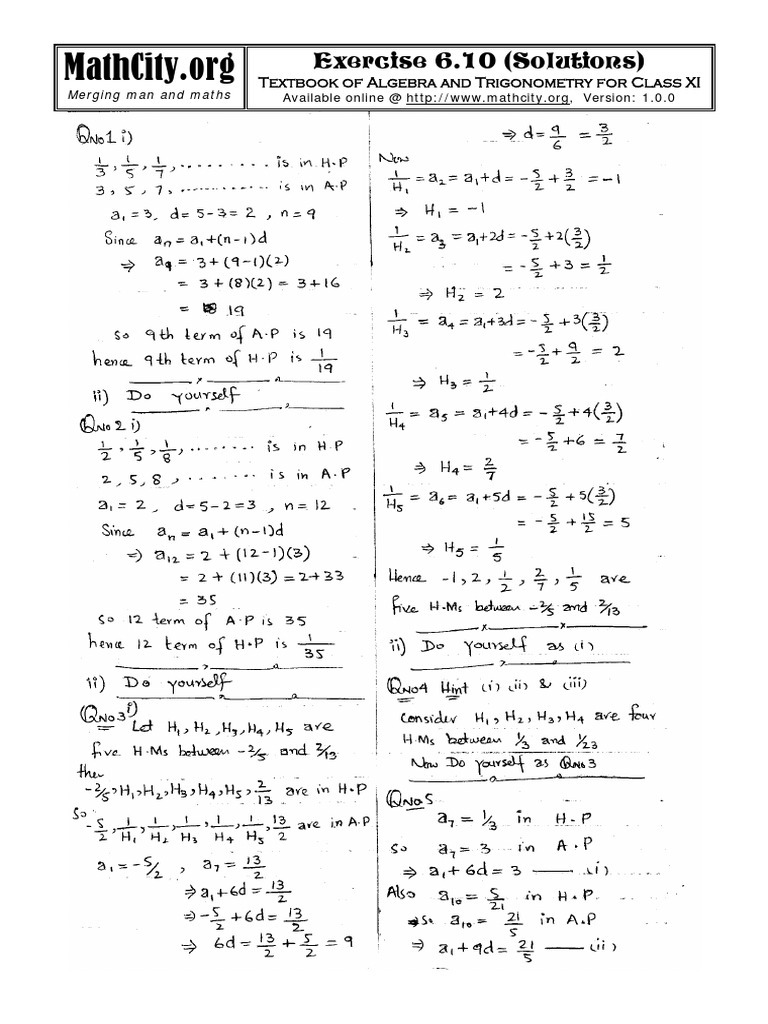 MathCity.org
Merging man and maths
Exercise 6.10 (Solutions)
Textbook of Algebra and Trigonometry for Class XI
Available online @ http://www.mathcity.org, Version: 1.0.0
QNo1 i)
1/3, 1/5, 1/7, ......... is in H.P
3, 5, 7, ............. is in A.P
a₁=3, d=5-3=2, n=9
Since aₙ=a₁+(n-1)d
⇒ a₉ = 3+(9-1)(2)
= 3+(8)(2) = 3+16
= 19
so 9th term of A.P is 19
hence 9th term of H.P is 1/19
ii) Do yourself
QNo2 i)
1/2, 1/5, 1/8, ........ is in H.P
2, 5, 8, ......... is in A.P
a₁=2, d=5-2=3, n=12
Since aₙ = a₁+(n-1)d
⇒ a₁₂ = 2+(12-1)(3)
= 2+(11)(3) = 2+33
= 35
so 12 term of A.P is 35
hence 12 term of H.P is 1/35
ii) Do yourself
QNo3 i)
Let H₁, H₂, H₃, H₄, H₅ are
five H.Ms between -2/5 and 2/13
then
-2/5, H₁, H₂, H₃, H₄, H₅, 2/13 are in H.P
So
-5/2, 1/H₁, 1/H₂, 1/H₃, 1/H₄, 1/H₅, 13/2 are in A.P
a₁=-5/2, a₇=13/2
⇒ a₁+6d=13/2
⇒ -5/2+6d=13/2
⇒ 6d=13/2+5/2=9
⇒ d=9/6=3/2
Now
1/H₁ = a₂ = a₁+d = -5/2+3/2 = -1
⇒ H₁ = -1
1/H₂ = a₃ = a₁+2d = -5/2+2(3/2)
= -5/2+3 = 1/2
⇒ H₂ = 2
1/H₃ = a₄ = a₁+3d = -5/2+3(3/2)
= -5/2+9/2 = 2
⇒ H₃ = 1/2
1/H₄ = a₅ = a₁+4d = -5/2+4(3/2)
= -5/2+6 = 7/2
⇒ H₄ = 2/7
1/H₅ = a₆ = a₁+5d = -5/2+5(3/2)
= -5/2+15/2 = 5
⇒ H₅ = 1/5
Hence -1, 2, 1/2, 2/7, 1/5 are
five H.Ms between -2/5 and 2/13
ii) Do yourself as (i)
QNo4 Hint (i) (ii) & (iii)
consider H₁, H₂, H₃, H₄ are four
H.Ms between 1/3 and 1/23
Now Do yourself as QNo3
QNo5
a₇ = 1/3 in H.P
so a₇ = 3 in A.P
⇒ a₁+6d = 3 —— (i)
Also a₁₀ = 5/21 in H.P.
so a₁₀ = 21/5 in A.P
⇒ a₁+9d = 21/5 —— (ii)